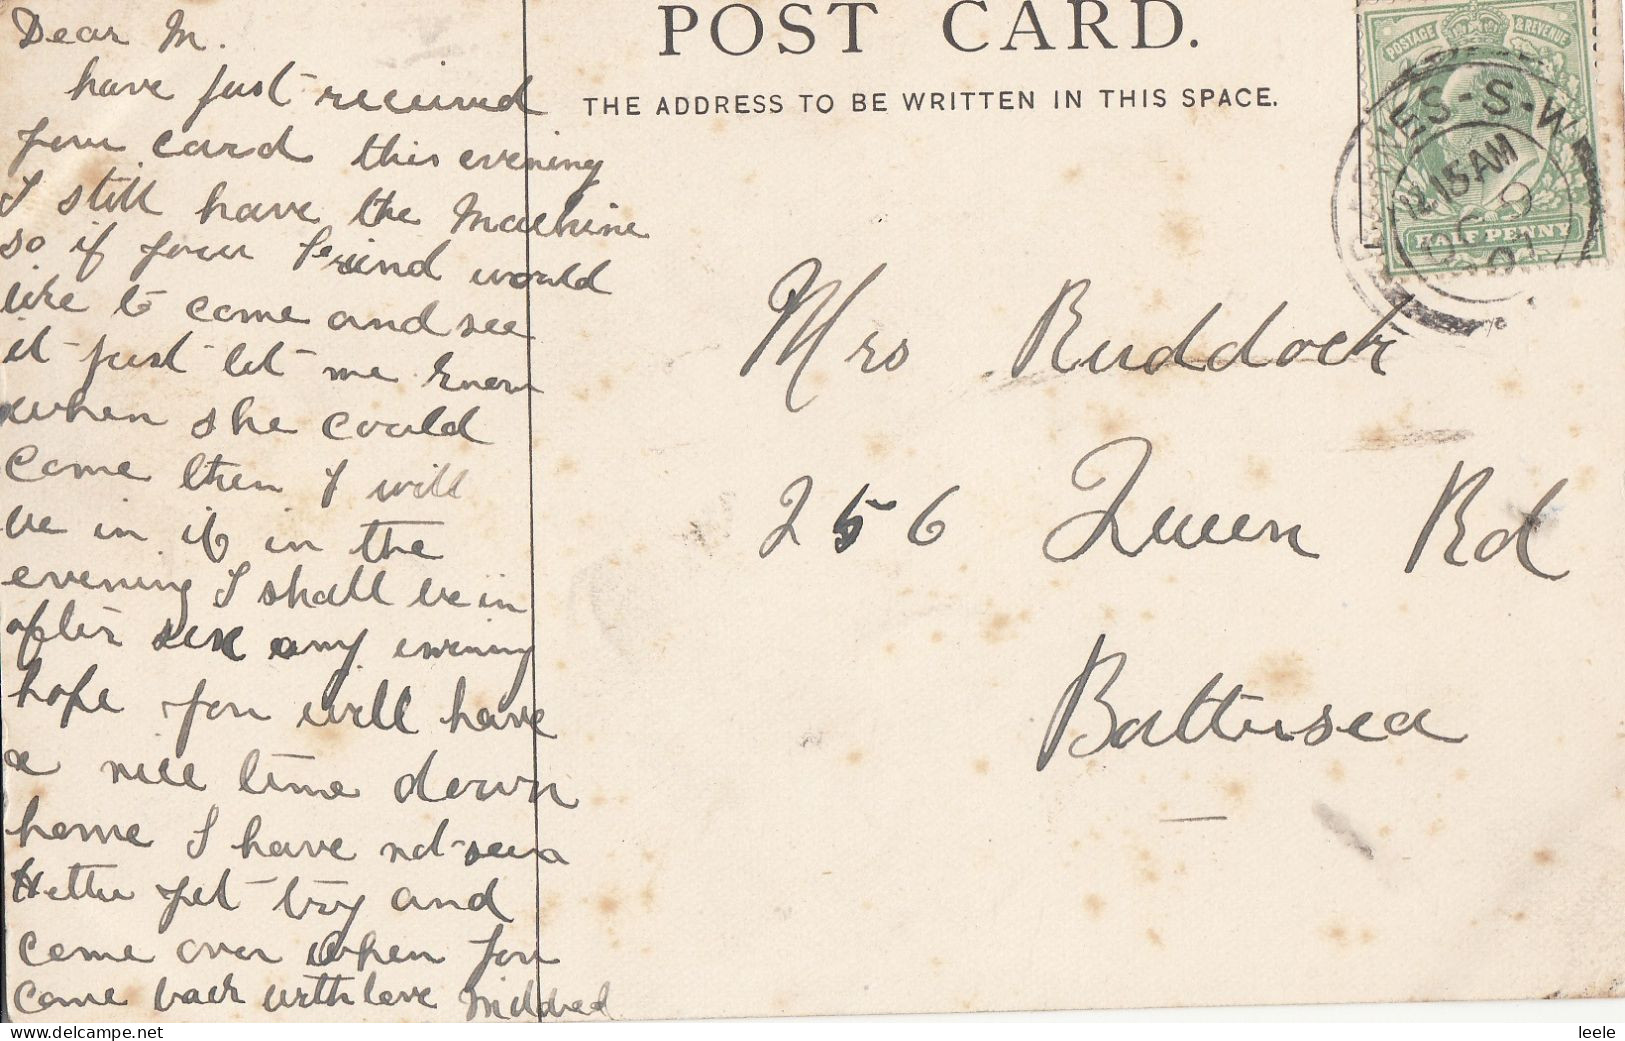 Dear M.
have just received
your card this evening
I still have the Machine
so if your Friend would
like to come and see
it just let me know
when she could
come then I will
be in if in the
evening I shall be in
after six any evening
hope you will have
a nice time down
home I have not seen
Hettie yet try and
come over when you
come back with love Mildred
POST CARD.
THE ADDRESS TO BE WRITTEN IN THIS SPACE.
POSTAGE & REVENUE
HALF PENNY
S-S-W
12.15 AM
Mrs Ruddock
256 Queen Rd
Battersea
leele